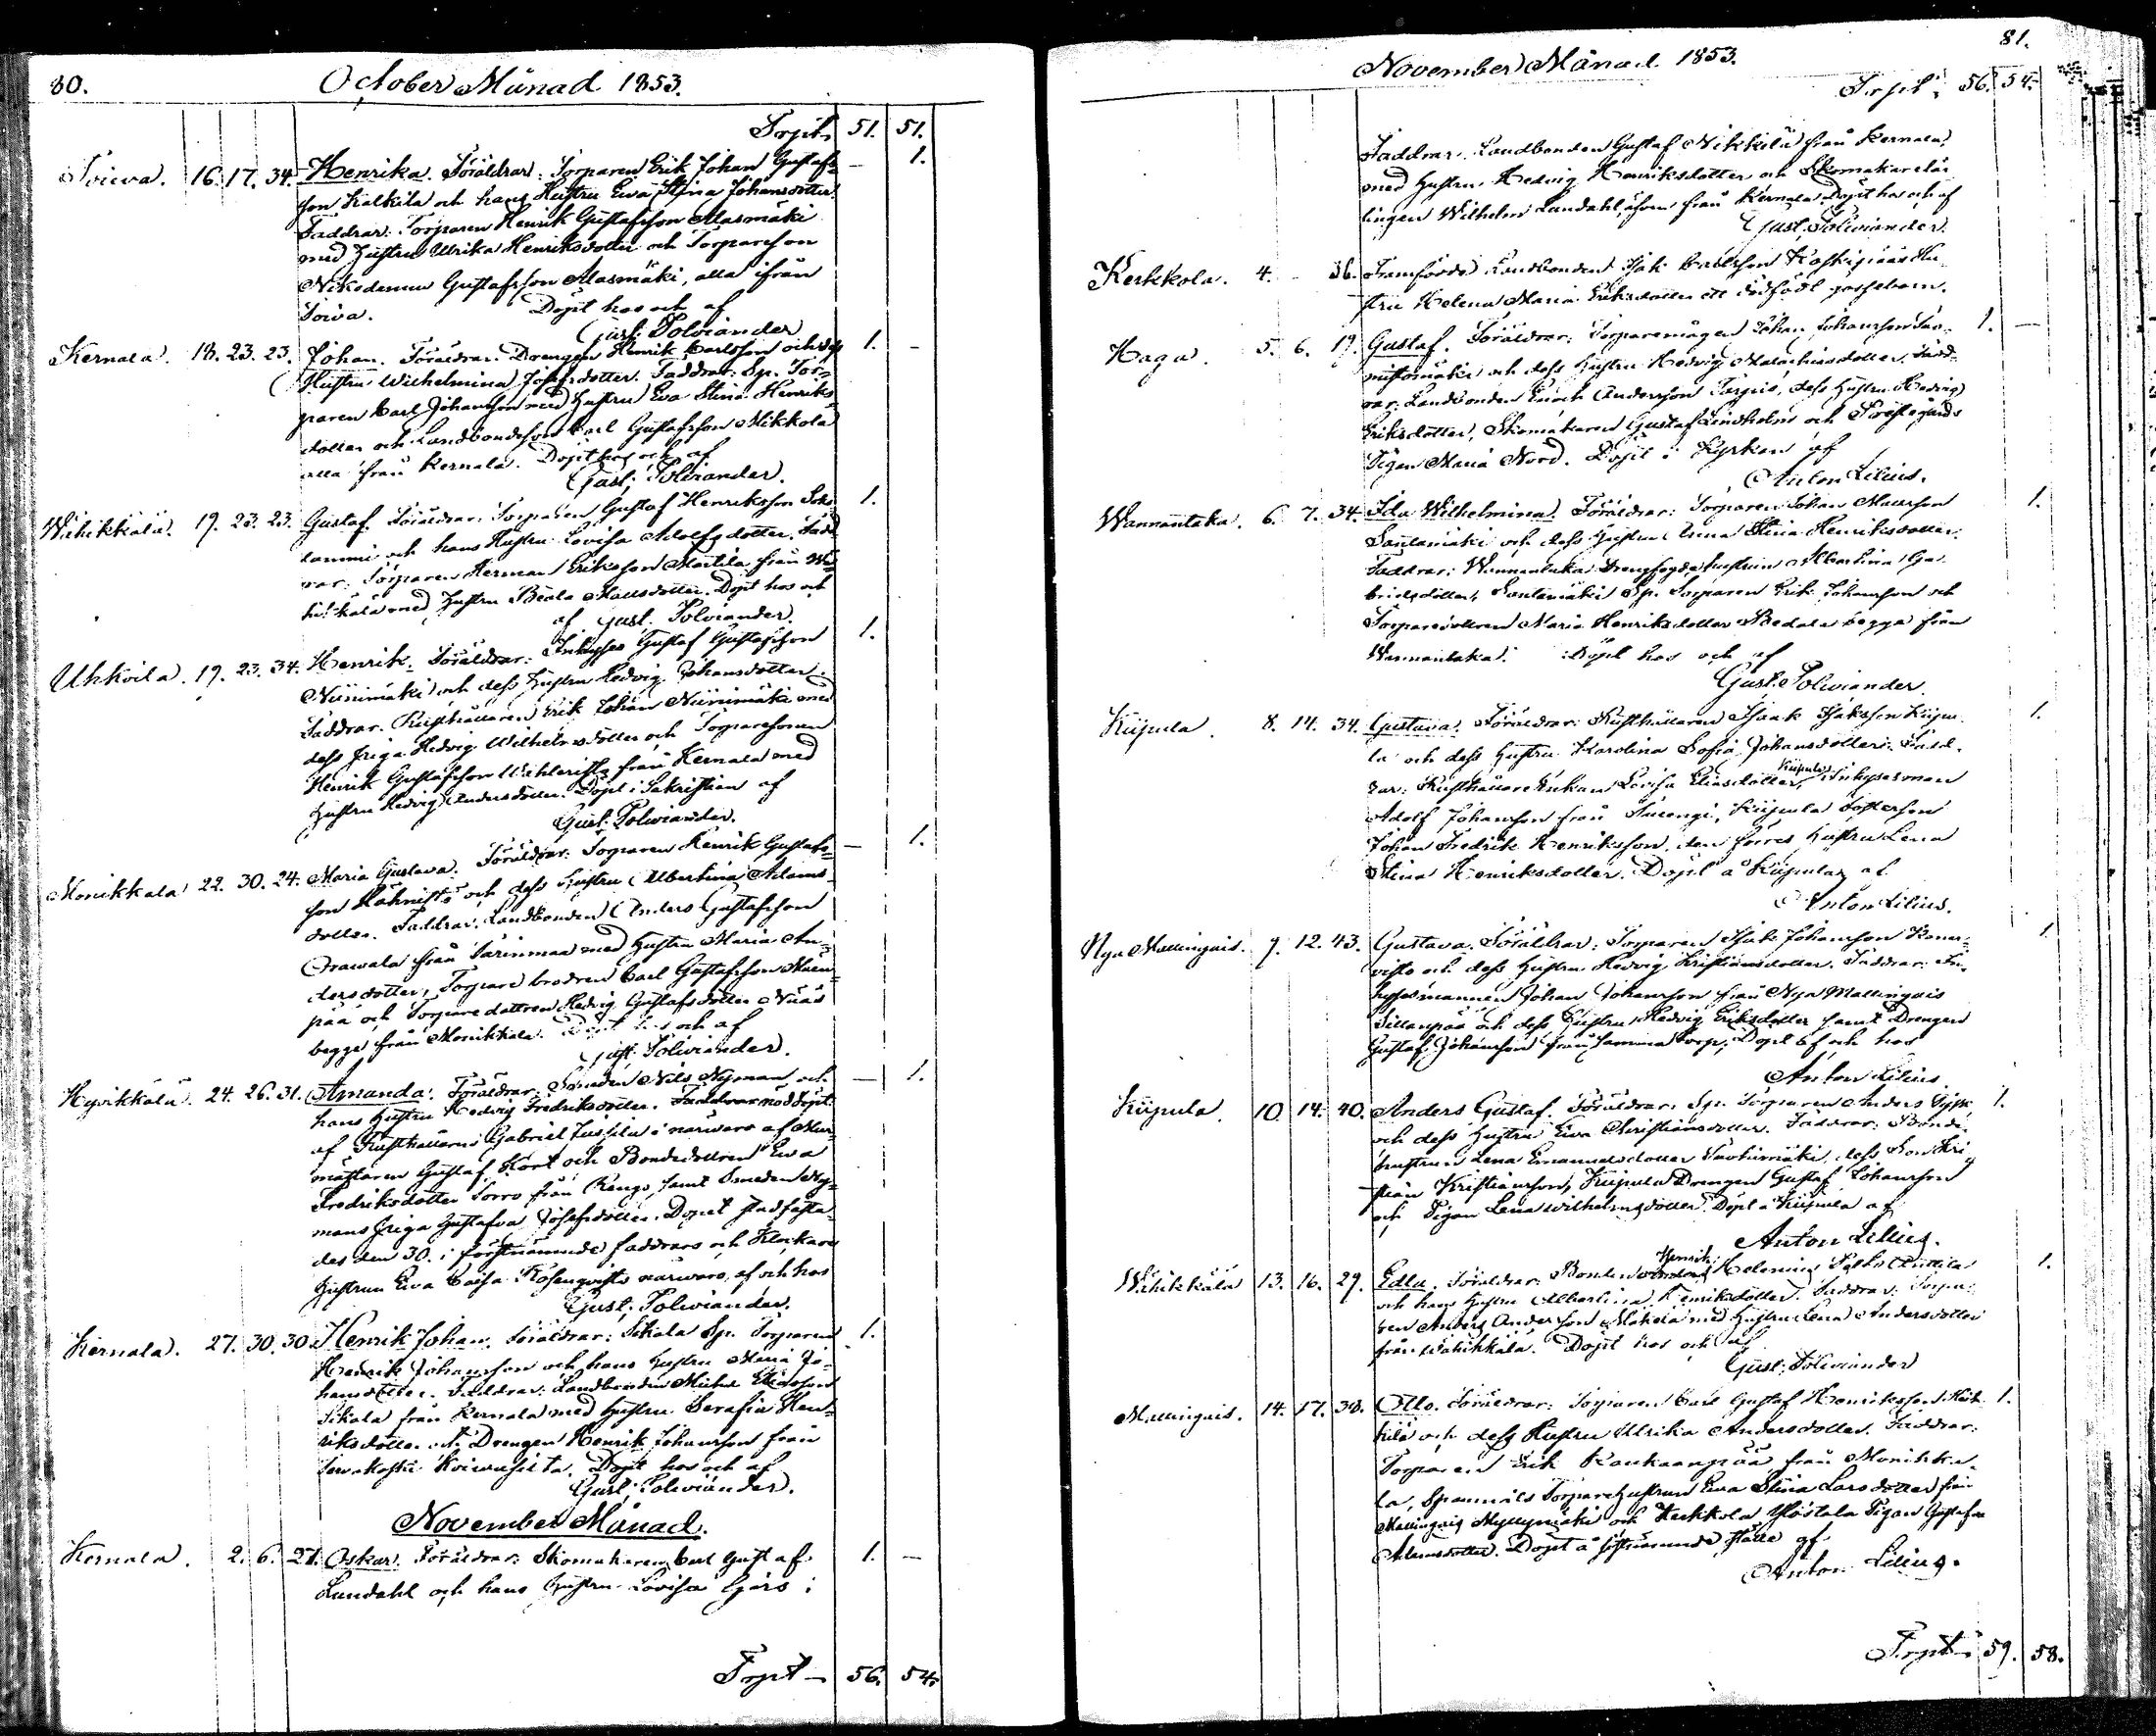 80. October Månad 1853.
Trspt 51. 51.
Toiva. 16. 17. 34. Henrika. Föräldrar: Torparen Erik Johan Gustafs- — 1.
son Kalkila och hans Hustru Ewa Stina Johansdotter.
Faddrar: Torparen Henrik Gustafsson Alasmäki
med Hustru Ulrika Henriksdotter och Torpareson
Nikodemus Gustafsson Alasmäki, alla ifrån
Toiva. Döpt hos och af
Gust. Polviander
Kernala. 18. 23. 23. Johan. Föräldrar: Drengen Henrik Carlsson och dess 1. —
Hustru Wilhelmina Josefsdotter. Faddrar: Sp. Tor-
paren Carl Johansson med Hustru Eva Stina Henriks-
dotter och Landbondeson Carl Gustafsson Mikkola
alla från Kernala. Döpt hos och af
Gust. Polviander.
Wähikkälä. 19. 23. 23. Gustaf. Föräldrar: Torparen Gustaf Henriksson 1.
lammi och hans Hustru Lovisa Adolfsdotter. Fadd-
rar: Torparen Herman Eriksson Mattila från Wä-
hikkälä med Hustru Beata Mattsdotter. Döpt hos och
af Gust. Polviander.
Uhkoila. 19. 23. 34. Henrik. Föräldrar: Inhyses Gustaf Gustafsson 1.
Niinimäki och dess Hustru Hedvig Johansdotter
Faddrar: Rusthållaren Erik Johan Niinimäki med
dess Piga Hedvig Wilhelmsdotter och Torparesonen
Henrik Gustafsson från Kernala med
Hustru Hedvig Andersdotter. Döpt i Sakristian af
Gust. Polviander.
Monikkala 22. 30. 24. Maria Gustava. Föräldrar: Torparen Henrik Gustafs- — 1.
son och dess Hustru Albertina Adams-
dotter. Faddrar: Landbonden Anders Gustafsson
Orawala från Sarinmaa med Hustru Maria An-
dersdotter, Torpare brodren Carl Gustafsson
pää och Torpare dottren Hedvig Gustafsdotter
begge från Monikkala. Döpt hos och af
Gust. Polviander.
Hyvikkälä. 24. 26. 31. Amanda. Föräldrar: Smeden Nils Nyman och — 1.
hans Hustru Hedvig Fredriksdotter. Faddrar nöddöpt
af Rusthållaren Gabriel Jussila i närvaro af Mur-
mästaren Gustaf Kort och Bondedottren Ewa
Fredriksdotter Sorro från Renge, samt Smeden Ny-
mans Piga Gustafva Josefsdotter. Dopet stadfästa-
des den 30. i förstnämnde faddrars och Klockare
Hustrun Eva Caisa Rosenqvists närvaro, af och hos
Gust. Polviander.
Kernala. 27. 30. 30. Henrik Johan. Föräldrar: Sikala Sp. Torparen 1.
Henrik Johansson och hans Hustru Maria Jo-
hansdotter. Faddrar: Landbonden Michel Eliasson
Sikala från Kernala med Hustru Serafia Hen-
riksdotter. Drengen Henrik Johansson från
Döpt hos och af
Gust. Polviander.
November Månad.
Kernala. 2. 6. 27. Oskar. Föräldrar: Skomakaren Carl Gustaf 1. —
Lundahl och hans Hustru Lovisa Görs:
Trspt 56. 54.
November Månad 1853. 81.
Trspt. 56. 54.
Faddrar: Landbonden Gustaf Nikkilä från Kernala
med Hustru Hedvig Henriksdotter och Skomakarelär-
lingen Wilhelm Lundahl, äfven från Kernala. Döpt hos och af
Gust. Polviander.
Kerkkola. 4. — 36. Framfödde Landbonden Isak Carlsson Koskipääs Hu-
stru Helena Maria Eriksdotter ett dödfödt gossebarn.
Haga. 5. 6. 19. Gustaf. Föräldrar: Torparemågen Johan Johansson 1. —
och dess Hustru Hedvig Malachiasdotter. Fadd-
rar: Landbonden Enoch Andersson dess Hustru Hedvig
Eriksdotter, Skomakaren Gustaf Lindholm och Prestegårds
Pigan Maria Nord. Döpt i Kyrkan af
Anton Lilius.
Wannantaka. 6. 7. 34. Ida Wilhelmina. Föräldrar: Torparen Johan Mattsson 1.
Santamäki och dess Hustru Anna Stina Henriksdotter.
Faddrar: Wannantaka Drengfogde hustrun Albertina Ga-
brielsdotter, Santamäki Sp. Torparen Erik Johansson och
Torparedottren Maria Henriksdotter begge från
Wannantaka. Döpt hos och af
Gust. Polviander.
Kiipula. 8. 14. 34. Gustava. Föräldrar: Rusthållaren Isaak Isaksson Kiipu- 1.
la och dess Hustru Karolina Sofia Johansdotter. Fadd-
rar: Rusthållare Enkan Lovisa Eliasdotter, Kiipula, Inhysesman
Adolf Johansson från Turengi, Kiipula Fosterson
Johan Fredrik Henriksson, den förres Hustru Lena
Stina Henriksdotter. Döpt å Kiipula af
Anton Lilius.
Nya Mallinguis. 9. 12. 43. Gustava. Föräldrar: Torparen Isak Johansson 1.
och dess Hustru Hedvig Kristiansdotter. Faddrar: In-
hysesmannen Johan Johansson från Nya Mallinguis
Sillanpää och dess Hustru Hedvig Eriksdotter samt Drengen
Gustaf Johansson från samma torp. Döpt af och hos
Anton Lilius.
Kiipula. 10. 14. 40. Anders Gustaf. Föräldrar: Sp. Torparen Anders 1.
och dess Hustru Ewa Christiansdotter. Faddrar: Bonde-
hustrun Lena Emanuelsdotter dess Son Kri-
stian Kristiansson, Kiipula Drengen Gustaf Johansson
och Pigan Lena Wilhelmsdotter. Döpt å Kiipula af
Anton Lilius.
Wähikkälä 13. 16. 29. Edla. Föräldrar: Henrik 1.
och hans Hustru Albertina Henriksdotter. Faddrar: Torpa-
ren Anders Andersson Mäkelä med Hustru Lena Andersdotter
från Wähikkälä. Döpt hos och af
Gust. Polviander
Mallinguis. 14. 17. 38. Otto. Föräldrar: Torparen Carl Gustaf Henriksson 1.
och dess Hustru Ulrika Andersdotter. Faddrar:
Torparen Erik Kaukaanpää från Monikka-
la, Torparehustrun Ewa Stina Larsdotter från
Mallinguis Myllymäki och Kerkkola Pigan Gustafva
Adamsdotter. Döpt å förstnämnde ställe af
Anton Lilius.
Trspt 59. 58.